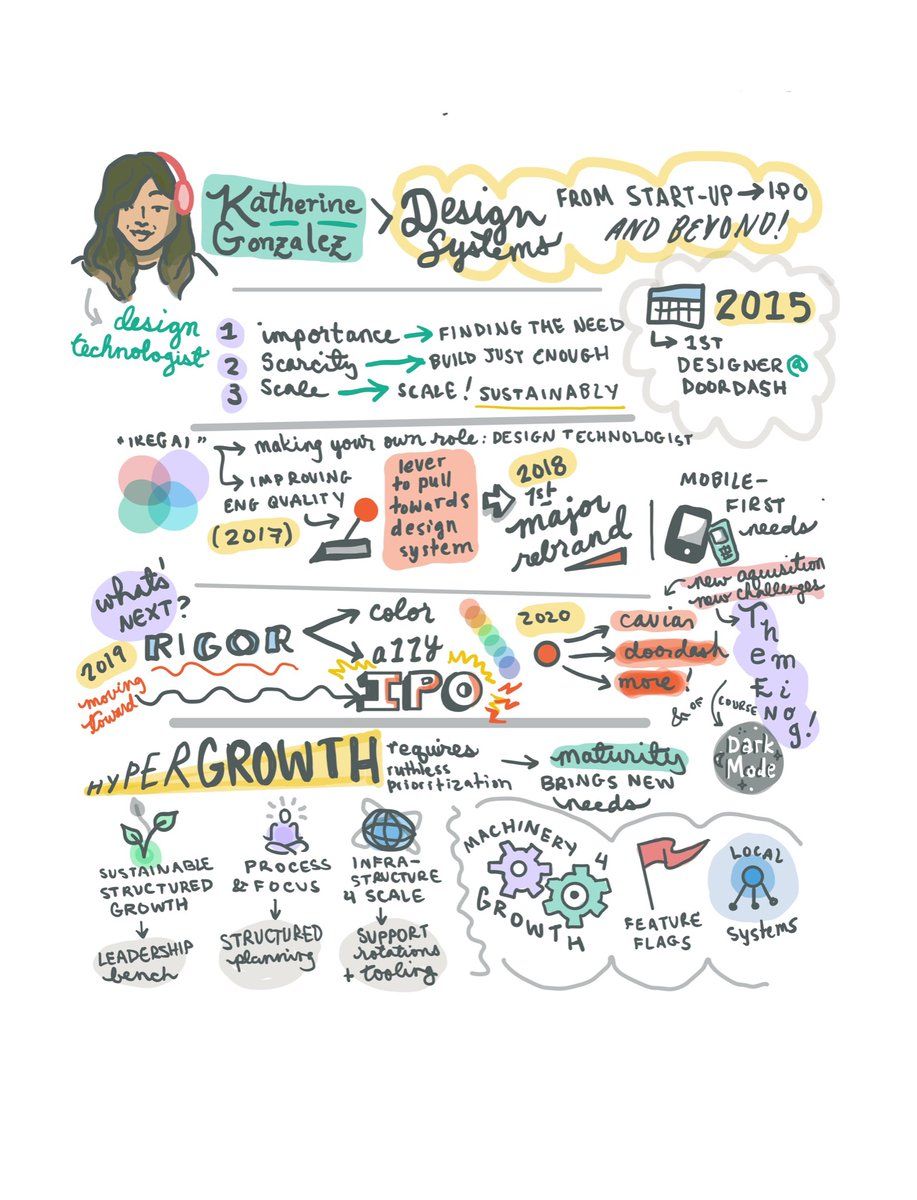 Katherine
Gonzalez
> Design
Systems
FROM START-UP → IPO
AND BEYOND!
design
technologist
1 importance → FINDING THE NEED
2 Scarcity → BUILD JUST ENOUGH
3 Scale → SCALE! SUSTAINABLY
2015
1ST
DESIGNER @
DOORDASH
"IKEGAI" → making your own role: DESIGN TECHNOLOGIST
→ IMPROVING
ENG QUALITY
(2017)
lever
to pull
towards
design
system
2018
1st
major
rebrand
MOBILE-
FIRST
needs
new aquisition
new challenges
what's'
NEXT?
2019
RIGOR
color
a11y
moving
toward
IPO
2020
caviar
doordash
more!
Themeing!
& OF
COURSE
Dark
Mode
HYPERGROWTH
requires
ruthless
prioritization
→ maturity
BRINGS NEW
needs
SUSTAINABLE
STRUCTURED
GROWTH
LEADERSHIP
bench
PROCESS
& FOCUS
STRUCTURED
planning
INFRA-
STRUCTURE
4 SCALE
SUPPORT
rotations
+ tooling
MACHINERY 4
GROWTH
FEATURE
FLAGS
LOCAL
systems